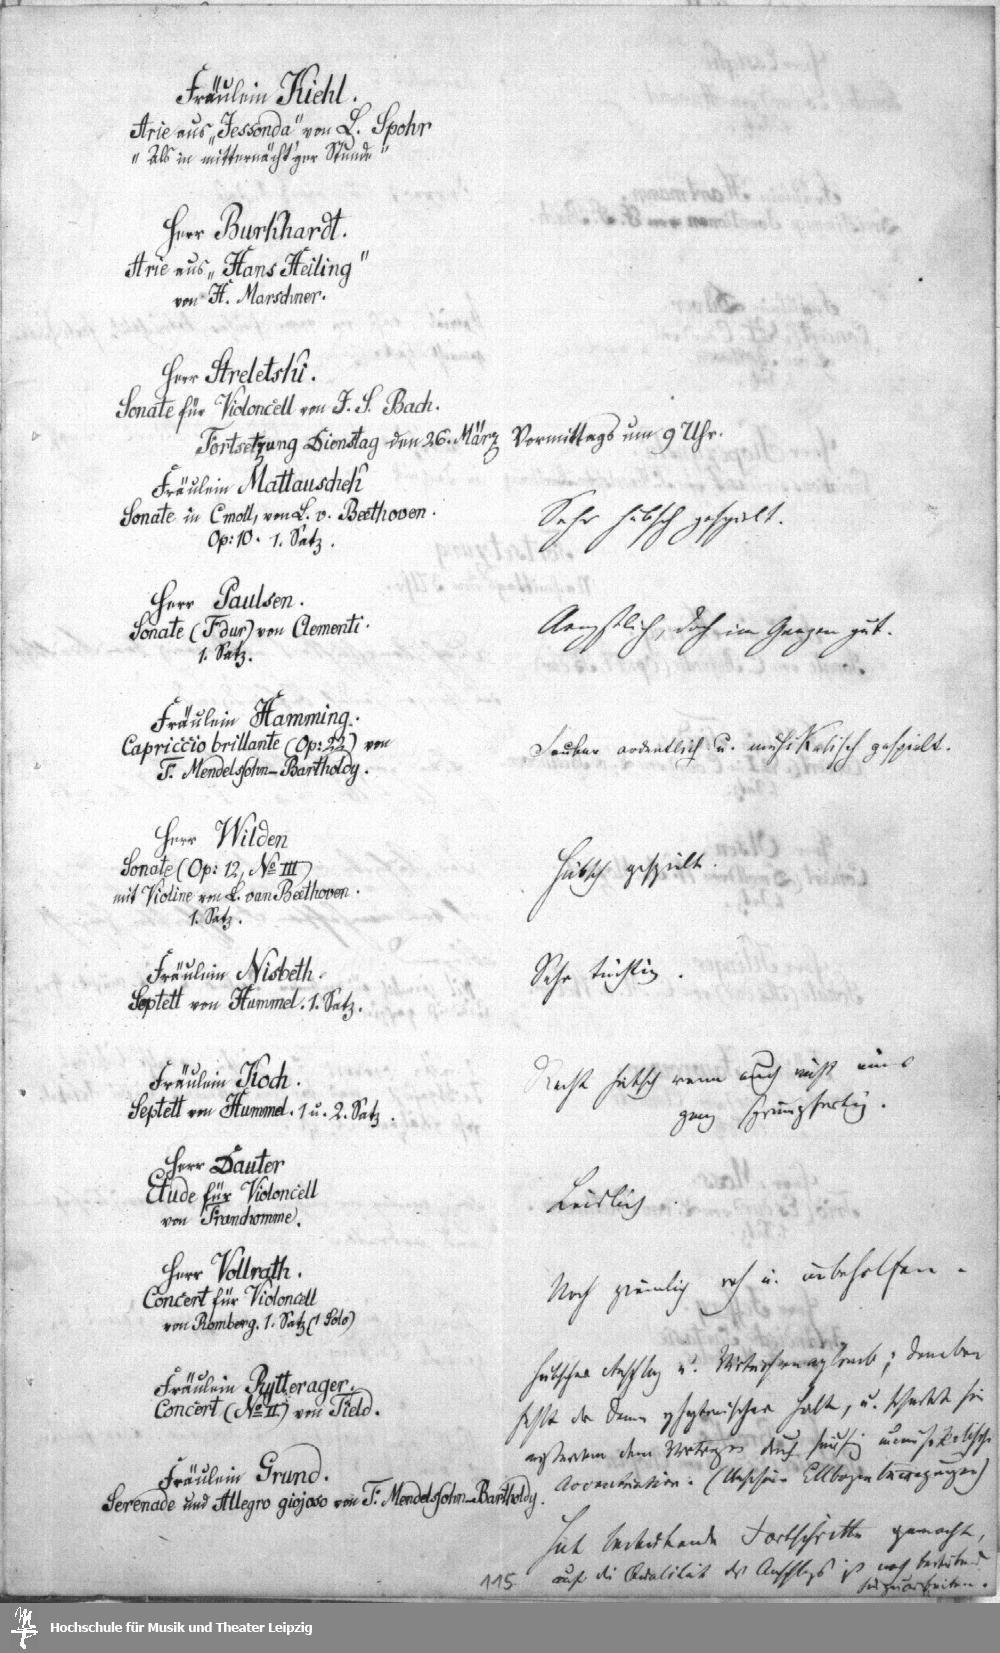 Fräulein Kiehl.
Arie aus „Jessonda" von L. Spohr
„Als in mitternächt'ger Stunde"
Herr Burkhardt.
Arie aus „Hans Heiling"
von H. Marschner.
Herr Streletski.
Sonate für Violoncell von J. S. Bach.
Fortsetzung Dienstag den 26. März Vormittags um 9 Uhr.
Fräulein Mattauschek
Sonate in Cmoll, von L. v. Beethoven.
Op: 10. 1. Satz.
Sehr hübsch gespielt.
Herr Paulsen.
Sonate (Fdur) von Clementi.
1. Satz.
Aengstlich, doch im Ganzen gut.
Fräulein Hamming.
Capriccio brillante (Op: 22) von
F. Mendelssohn-Bartholdy.
Sauber ordentlich u. musikalisch gespielt.
Herr Wilden
Sonate (Op: 12, No III)
mit Violine von L. van Beethoven.
1. Satz.
Hübsch gespielt.
Fräulein Nisbeth.
Septett von Hummel. 1. Satz.
Sehr tüchtig.
Fräulein Koch.
Septett von Hummel. 1 u. 2. Satz.
Recht hübsch wenn auch nicht
ganz sprungfertig.
Herr Dauter
Etude für Violoncell
von Franchomme.
Leidlich.
Herr Vollrath.
Concert für Violoncell
von Romberg. 1. Satz (1 Solo)
Noch ziemlich roh u. unbeholfen.
Fräulein Rytterager.
Concert (No II) von Field.
Hübscher Anschlag u. ; daneben
fehlt der Dame rhythmischer Halt, u. schadet sie
ausserdem dem Vortrage durch häufig unmusikalische
Accentuation. ( Ellbogenbewegungen)
Fräulein Grund.
Serenade und Allegro giojoso von F. Mendelssohn-Bartholdy.
Hat bedeutende Fortschritte gemacht,
auf die Qualität des Anschlags ist noch bedeutend
hinzuarbeiten.
115
Hochschule für Musik und Theater Leipzig